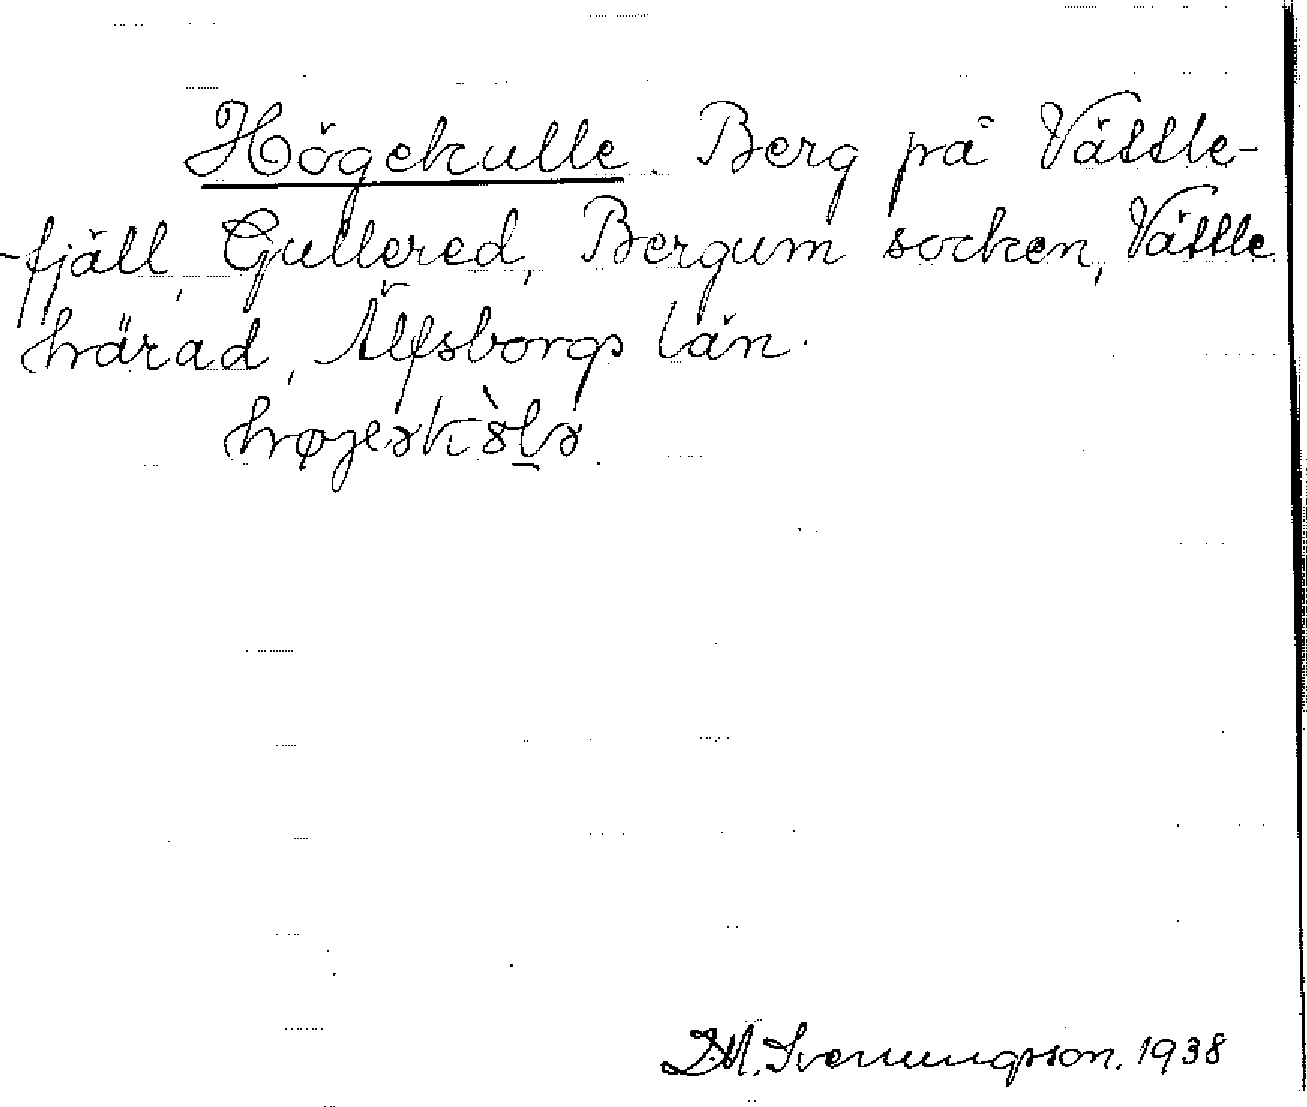 Högekulle. Berg på Vättle-
-fjäll, Gullered, Bergum socken, Vättle
härad, Älfsborgs län.
Svenungsson. 1938